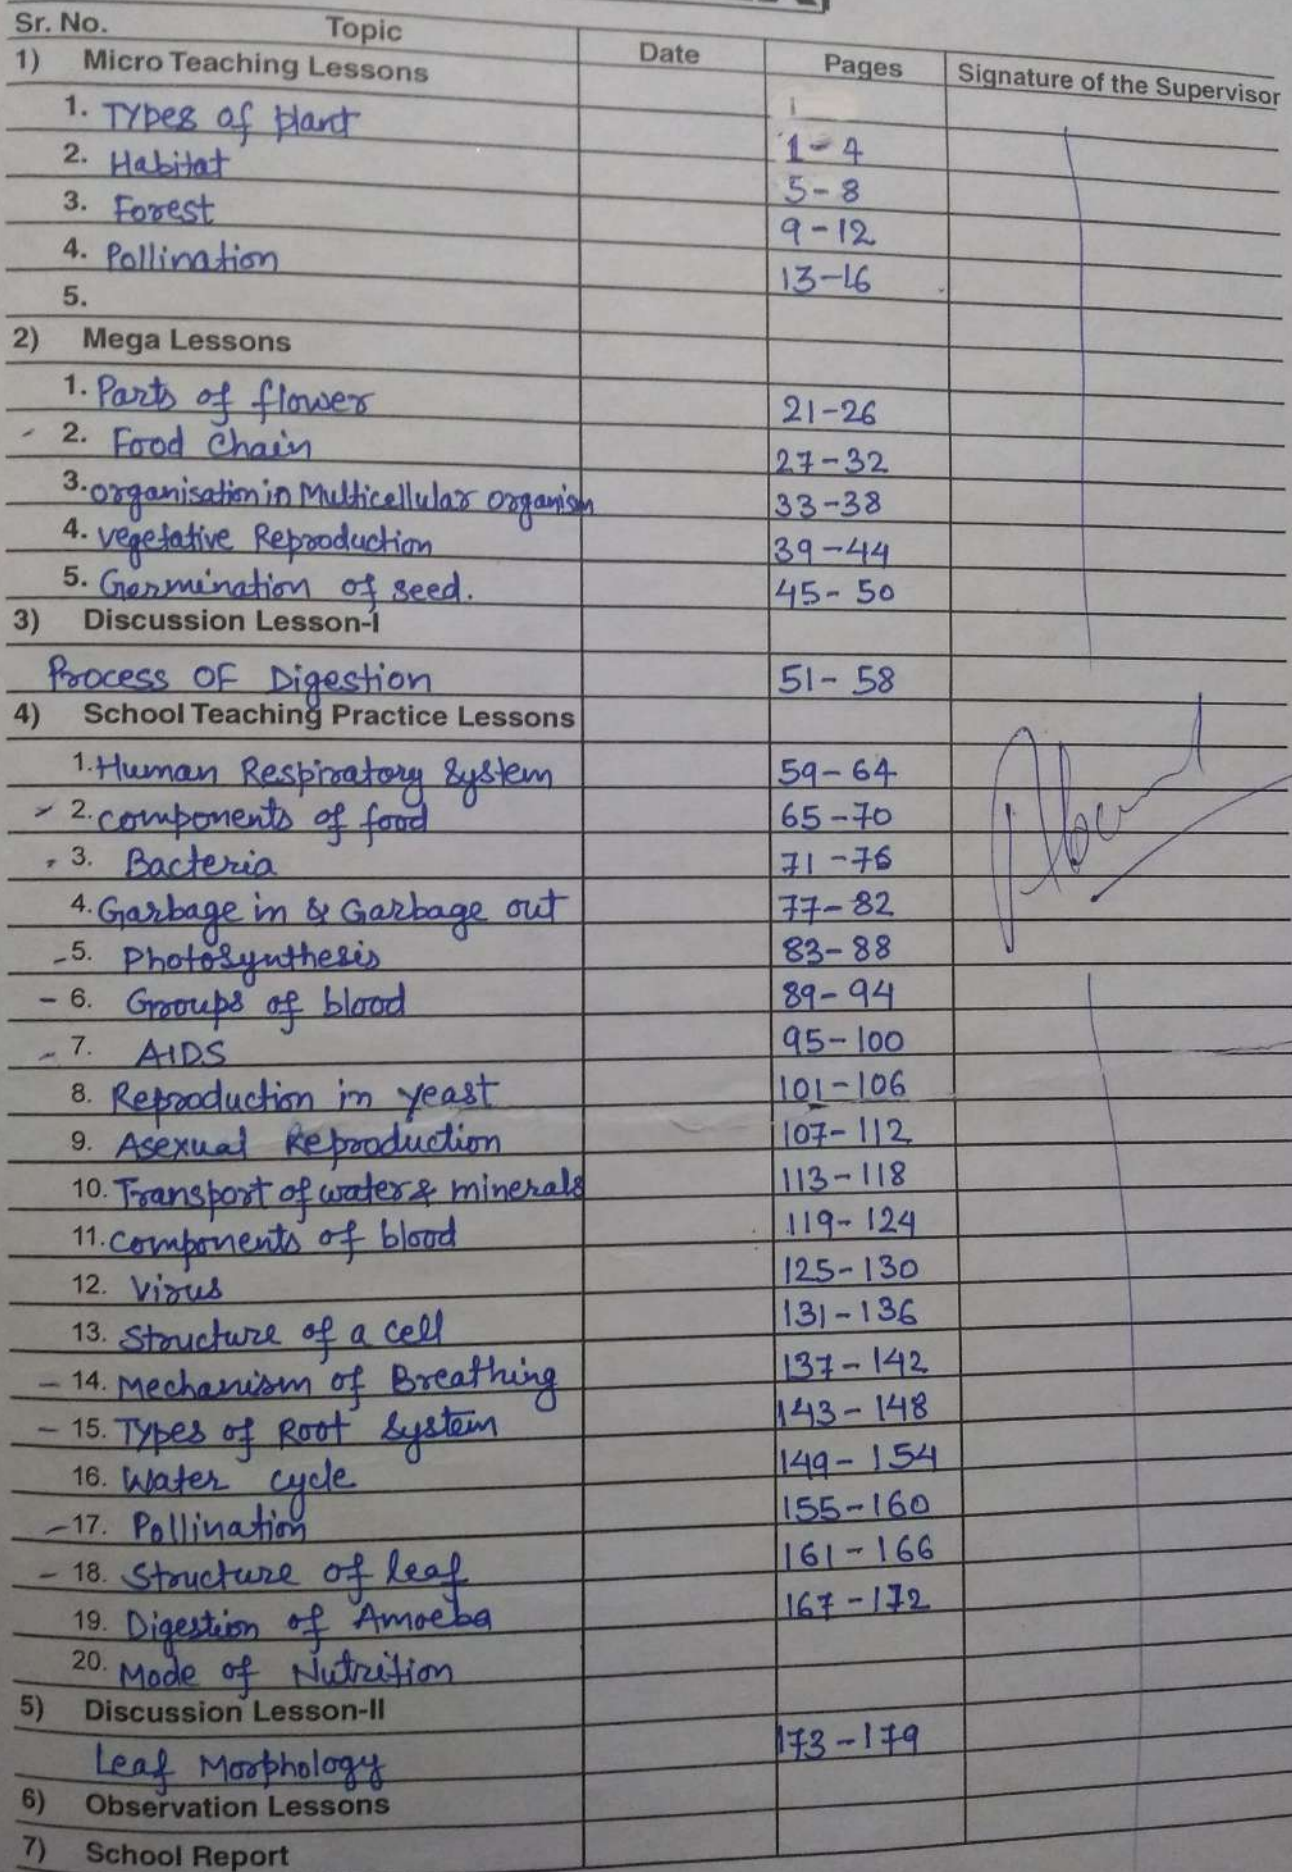 Sr. No. Topic Date Pages Signature of the Supervisor
1) Micro Teaching Lessons
1. Types of plant 1-4
2. Habitat 5-8
3. Forest 9-12
4. Pollination 13-16
5.
2) Mega Lessons
1. Parts of flower 21-26
2. Food Chain 27-32
3. organisation in Multicellular organism 33-38
4. vegetative Reproduction 39-44
5. Germination of seed. 45-50
3) Discussion Lesson-I
Process OF Digestion 51-58
4) School Teaching Practice Lessons
1. Human Respiratory System 59-64
2. components of food 65-70
3. Bacteria 71-76
4. Garbage in & Garbage out 77-82
5. Photosynthesis 83-88
6. Groups of blood 89-94
7. AIDS 95-100
8. Reproduction in yeast 101-106
9. Asexual Reproduction 107-112
10. Transport of water & minerals 113-118
11. components of blood 119-124
12. Virus 125-130
13. Structure of a cell 131-136
14. Mechanism of Breathing 137-142
15. Types of Root System 143-148
16. Water cycle 149-154
17. Pollination 155-160
18. Structure of leaf 161-166
19. Digestion of Amoeba 167-172
20. Mode of Nutrition
5) Discussion Lesson-II
Leaf Morphology 173-179
6) Observation Lessons
7) School Report